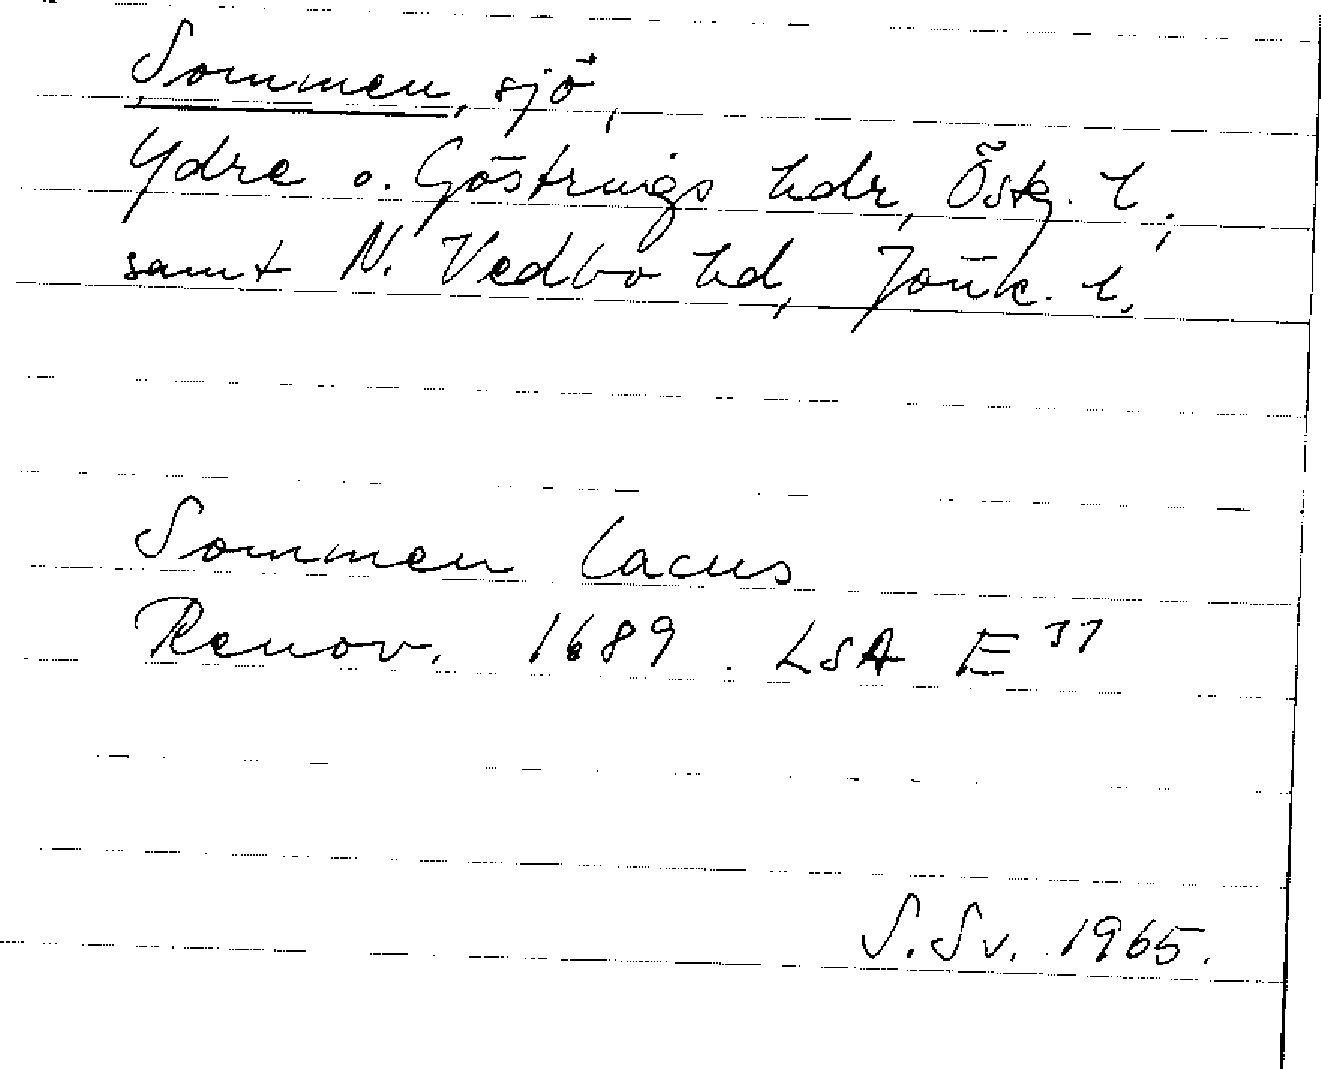 Sommen, sjö,
Ydre o. Göstrings hdr, Östg. l.,
samt N. Vedbo hd, Jönk. l.
Sommen lacus
Renov. 1689. LSA E 37
S. Sv. 1965.